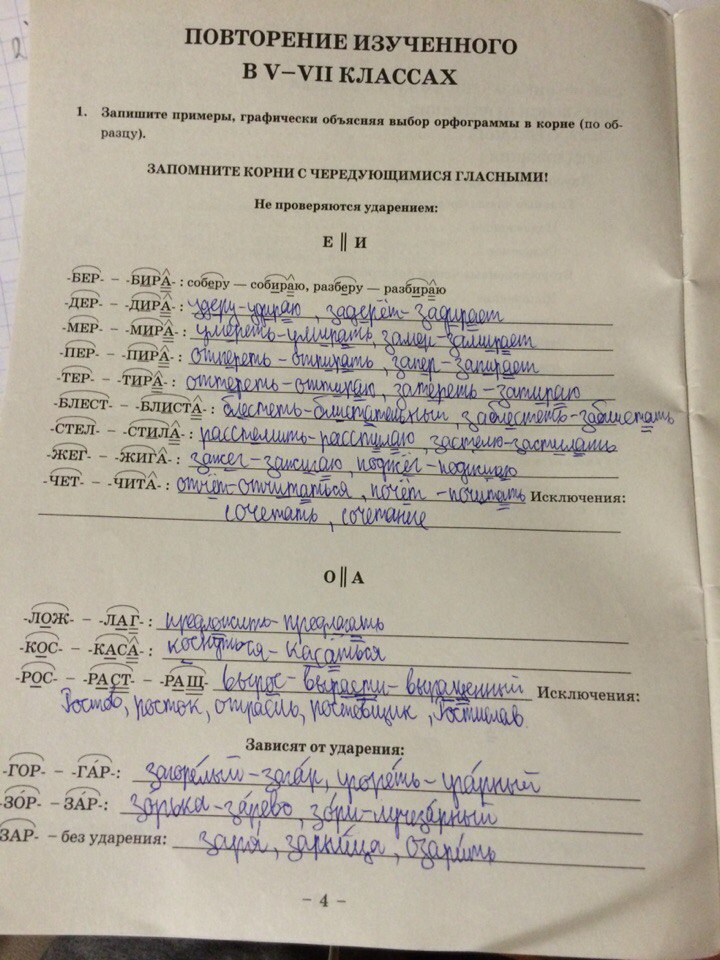 ПОВТОРЕНИЕ ИЗУЧЕННОГО
В V–VII КЛАССАХ
1. Запишите примеры, графически объясняя выбор орфограммы в корне (по об-
разцу).
ЗАПОМНИТЕ КОРНИ С ЧЕРЕДУЮЩИМИСЯ ГЛАСНЫМИ!
Не проверяются ударением:
Е || И
-БЕР- – -БИРА- : соберу — собираю, разберу — разбираю
-ДЕР- – -ДИРА- : удеру-удираю, задерёт-задирает
-МЕР- – -МИРА- : умереть-умирать, замер-замирает
-ПЕР- – -ПИРА- : отпереть-отпирать, запер-запирает
-ТЕР- – -ТИРА- : оттереть-оттираю, затереть-затираю
-БЛЕСТ- – -БЛИСТА- : блестеть-блистательный, заблестеть-заблистать
-СТЕЛ- – -СТИЛА- : расстелить-расстилаю, застелю-застилать
-ЖЕГ- – -ЖИГА- : зажег-зажигаю, поджёг-поджигаю
-ЧЕТ- – -ЧИТА- : отчёт-отчитаться, почёт-почитать Исключения:
сочетать, сочетание
О || А
-ЛОЖ- – -ЛАГ- : предложить-предлагать
-КОС- – -КАСА- : коснуться-касаться
-РОС- – -РАСТ- – -РАЩ- вырос-вырасти-выращенный Исключения:
Ростов, росток, отрасль, ростовщик, Ростислав.
Зависят от ударения:
-ГОР- – -ГА́Р-: загоре́лый-зага́р, угоре́ть-уга́рный
-ЗО́Р- – -ЗА́Р- : зо́рька-за́рево, зо́ри-лучеза́рный
ЗАР- – без ударения: заря́, зарни́ца, озари́ть
– 4 –